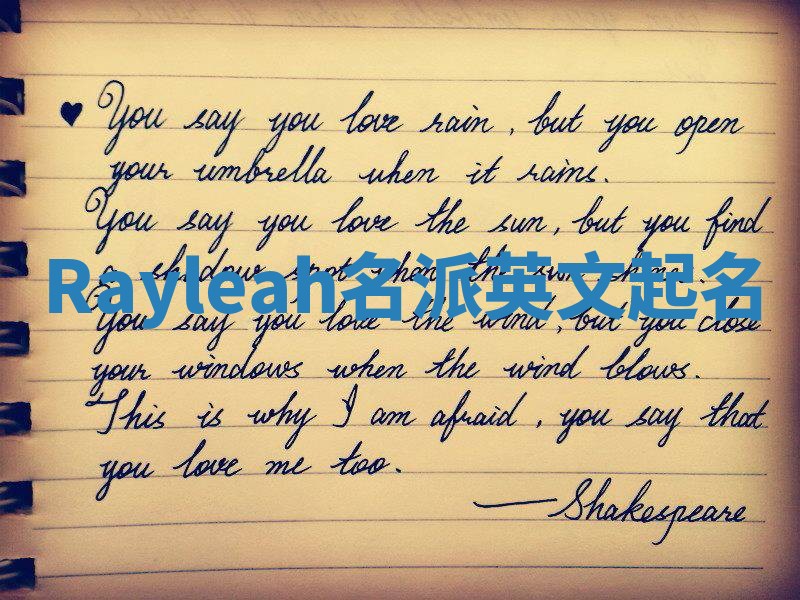 ♥ You say you love rain, but you open
your umbrella when it rains.
You say you love the sun, but you find
a shadow spot when the sun shines.
Rayleah名派英文起名
You say you love the wind, but you close
your windows when the wind blows.
This is why I am afraid, you say that
you love me too.
—Shakespeare